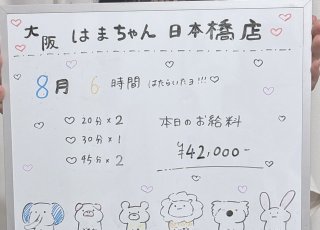 大阪 はまちゃん 日本橋店
8月 6時間 はたらいたヨ!!!
20分×2
30分×1
45分×2
本日のお給料
¥42,000-